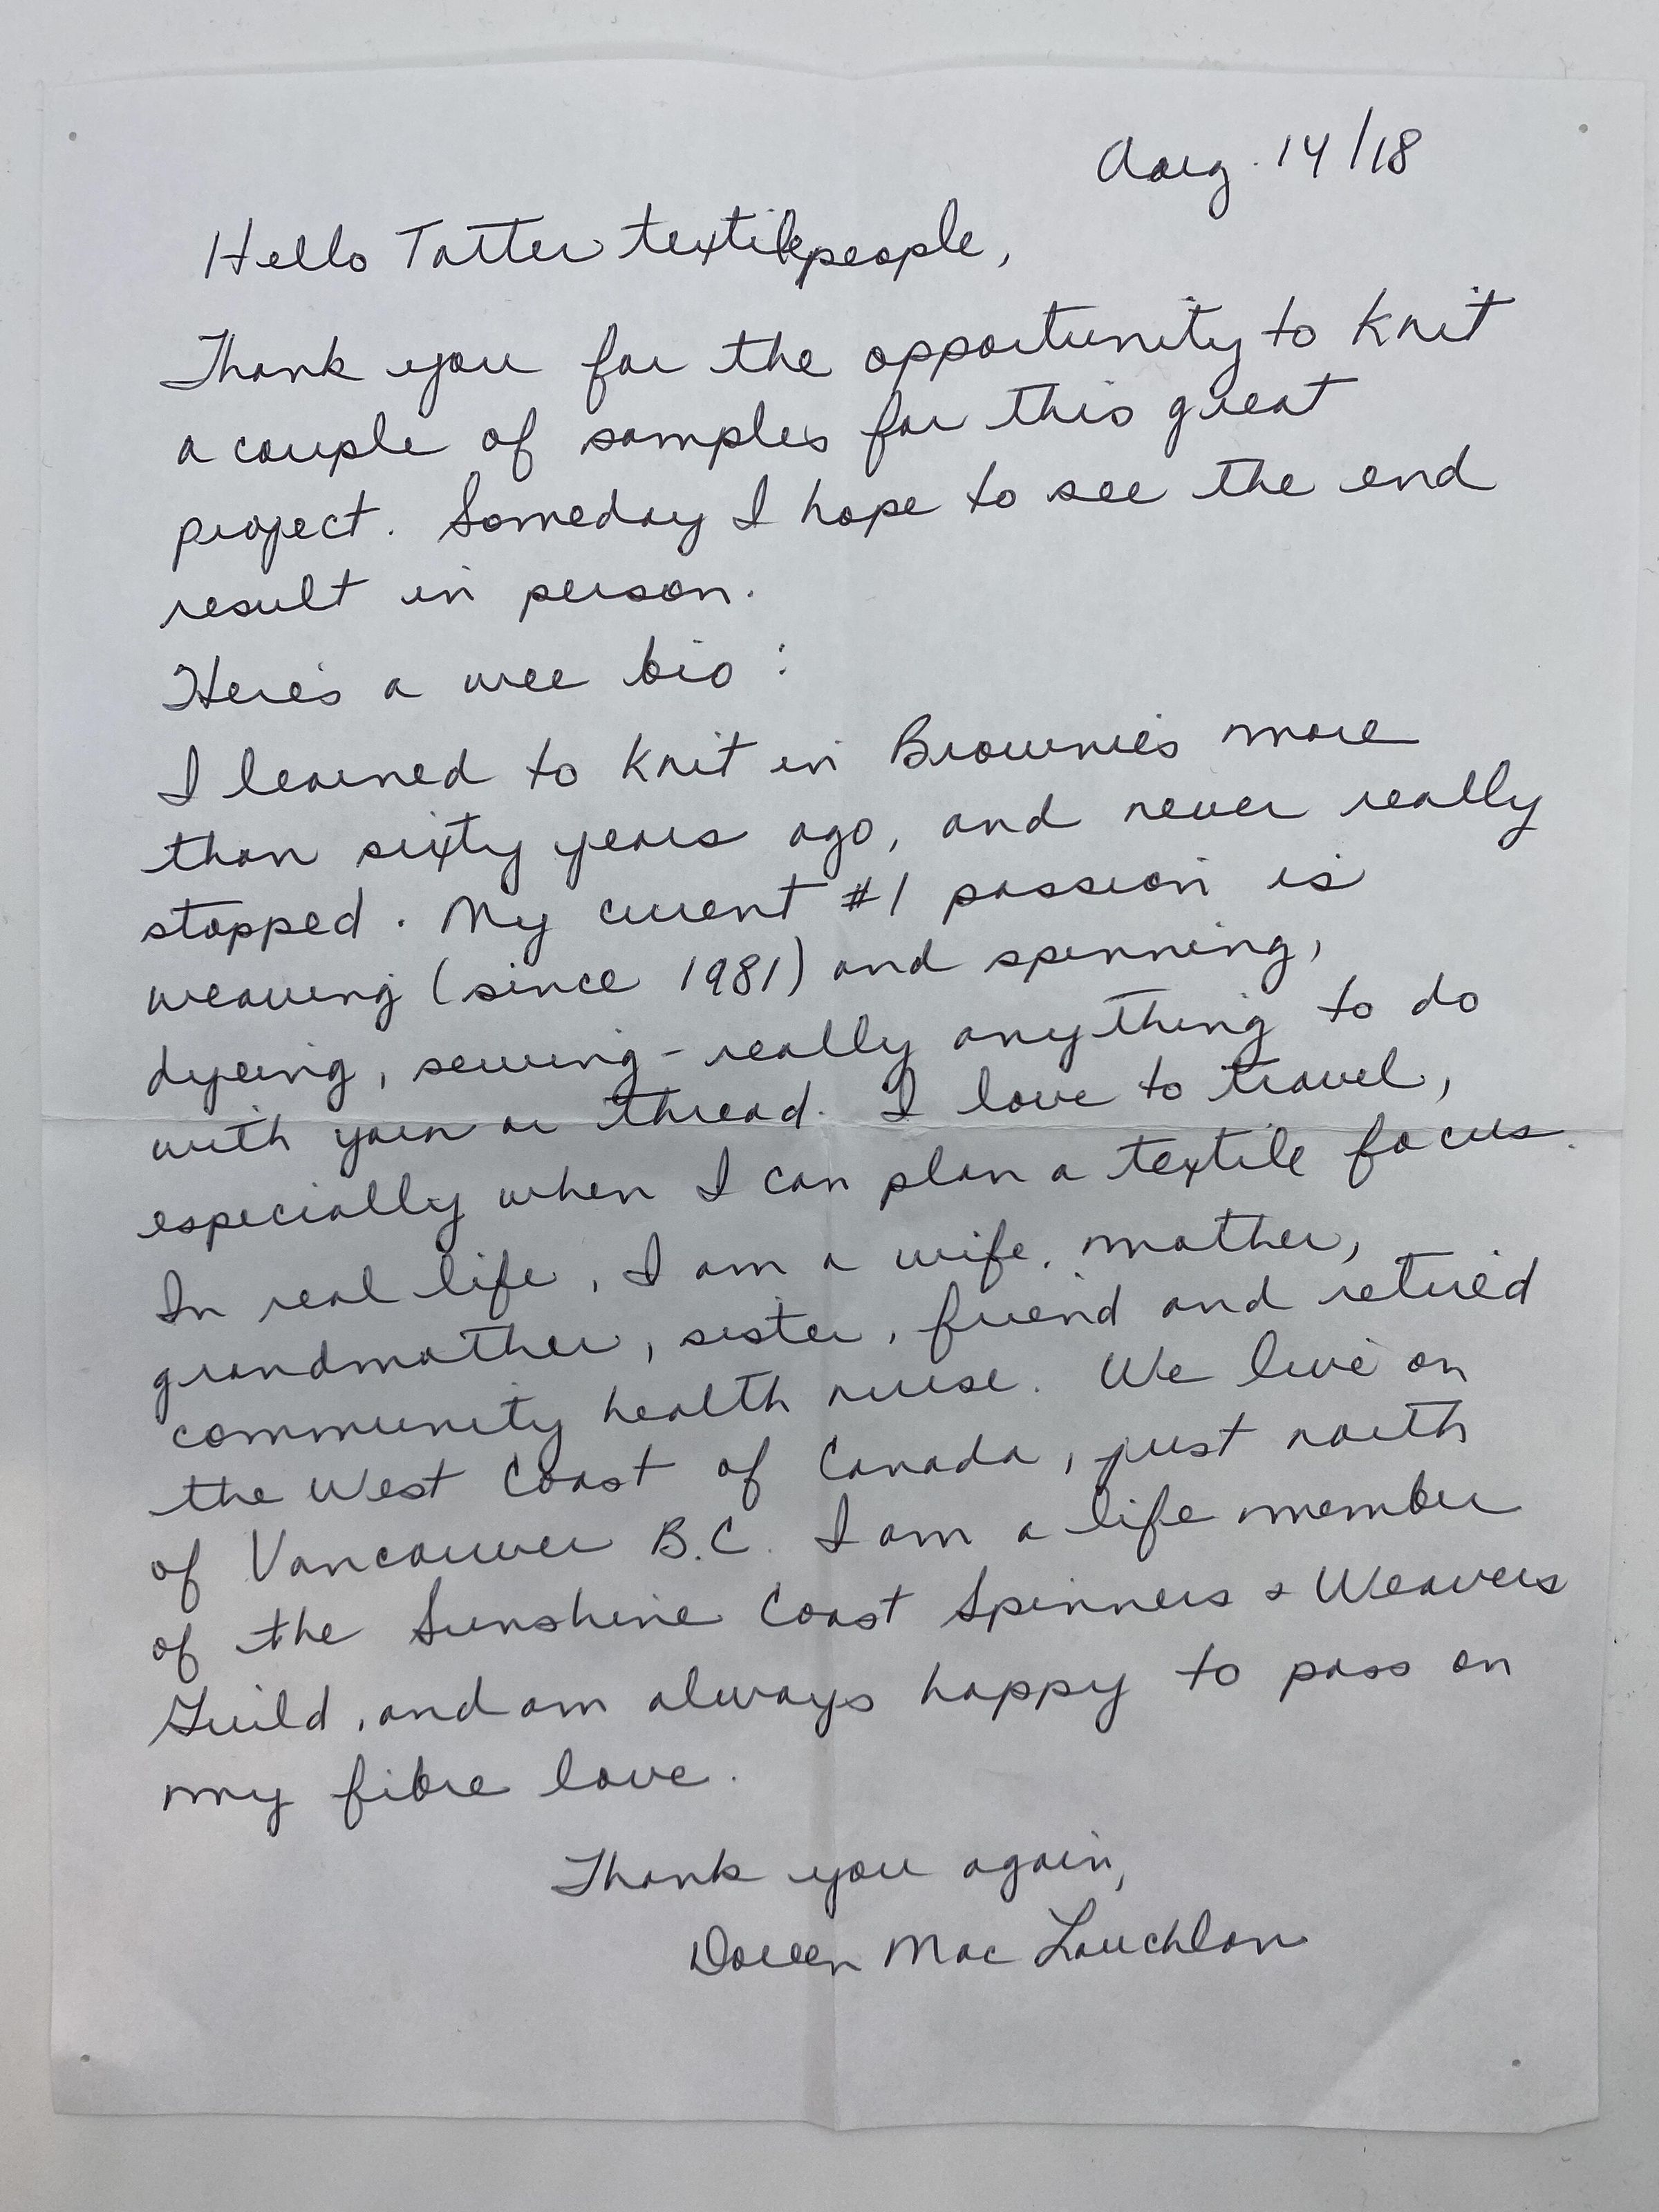 Aug. 14/18
Hello Tatter textile people,
Thank you for the opportunity to knit
a couple of samples for this great
project. Someday I hope to see the end
result in person.
Here's a wee bio:
I learned to knit in Brownies more
than sixty years ago, and never really
stopped. My current #1 passion is
weaving (since 1981) and spinning,
dyeing, sewing - really anything to do
with yarn or thread. I love to travel,
especially when I can plan a textile focus.
In real life, I am a wife, mother,
grandmother, sister, friend and retired
community health nurse. We live on
the West Coast of Canada, just north
of Vancouver B.C. I am a life member
of the Sunshine Coast Spinners & Weavers
Guild, and am always happy to pass on
my fibre love.
Thank you again,
Doreen MacLauchlan